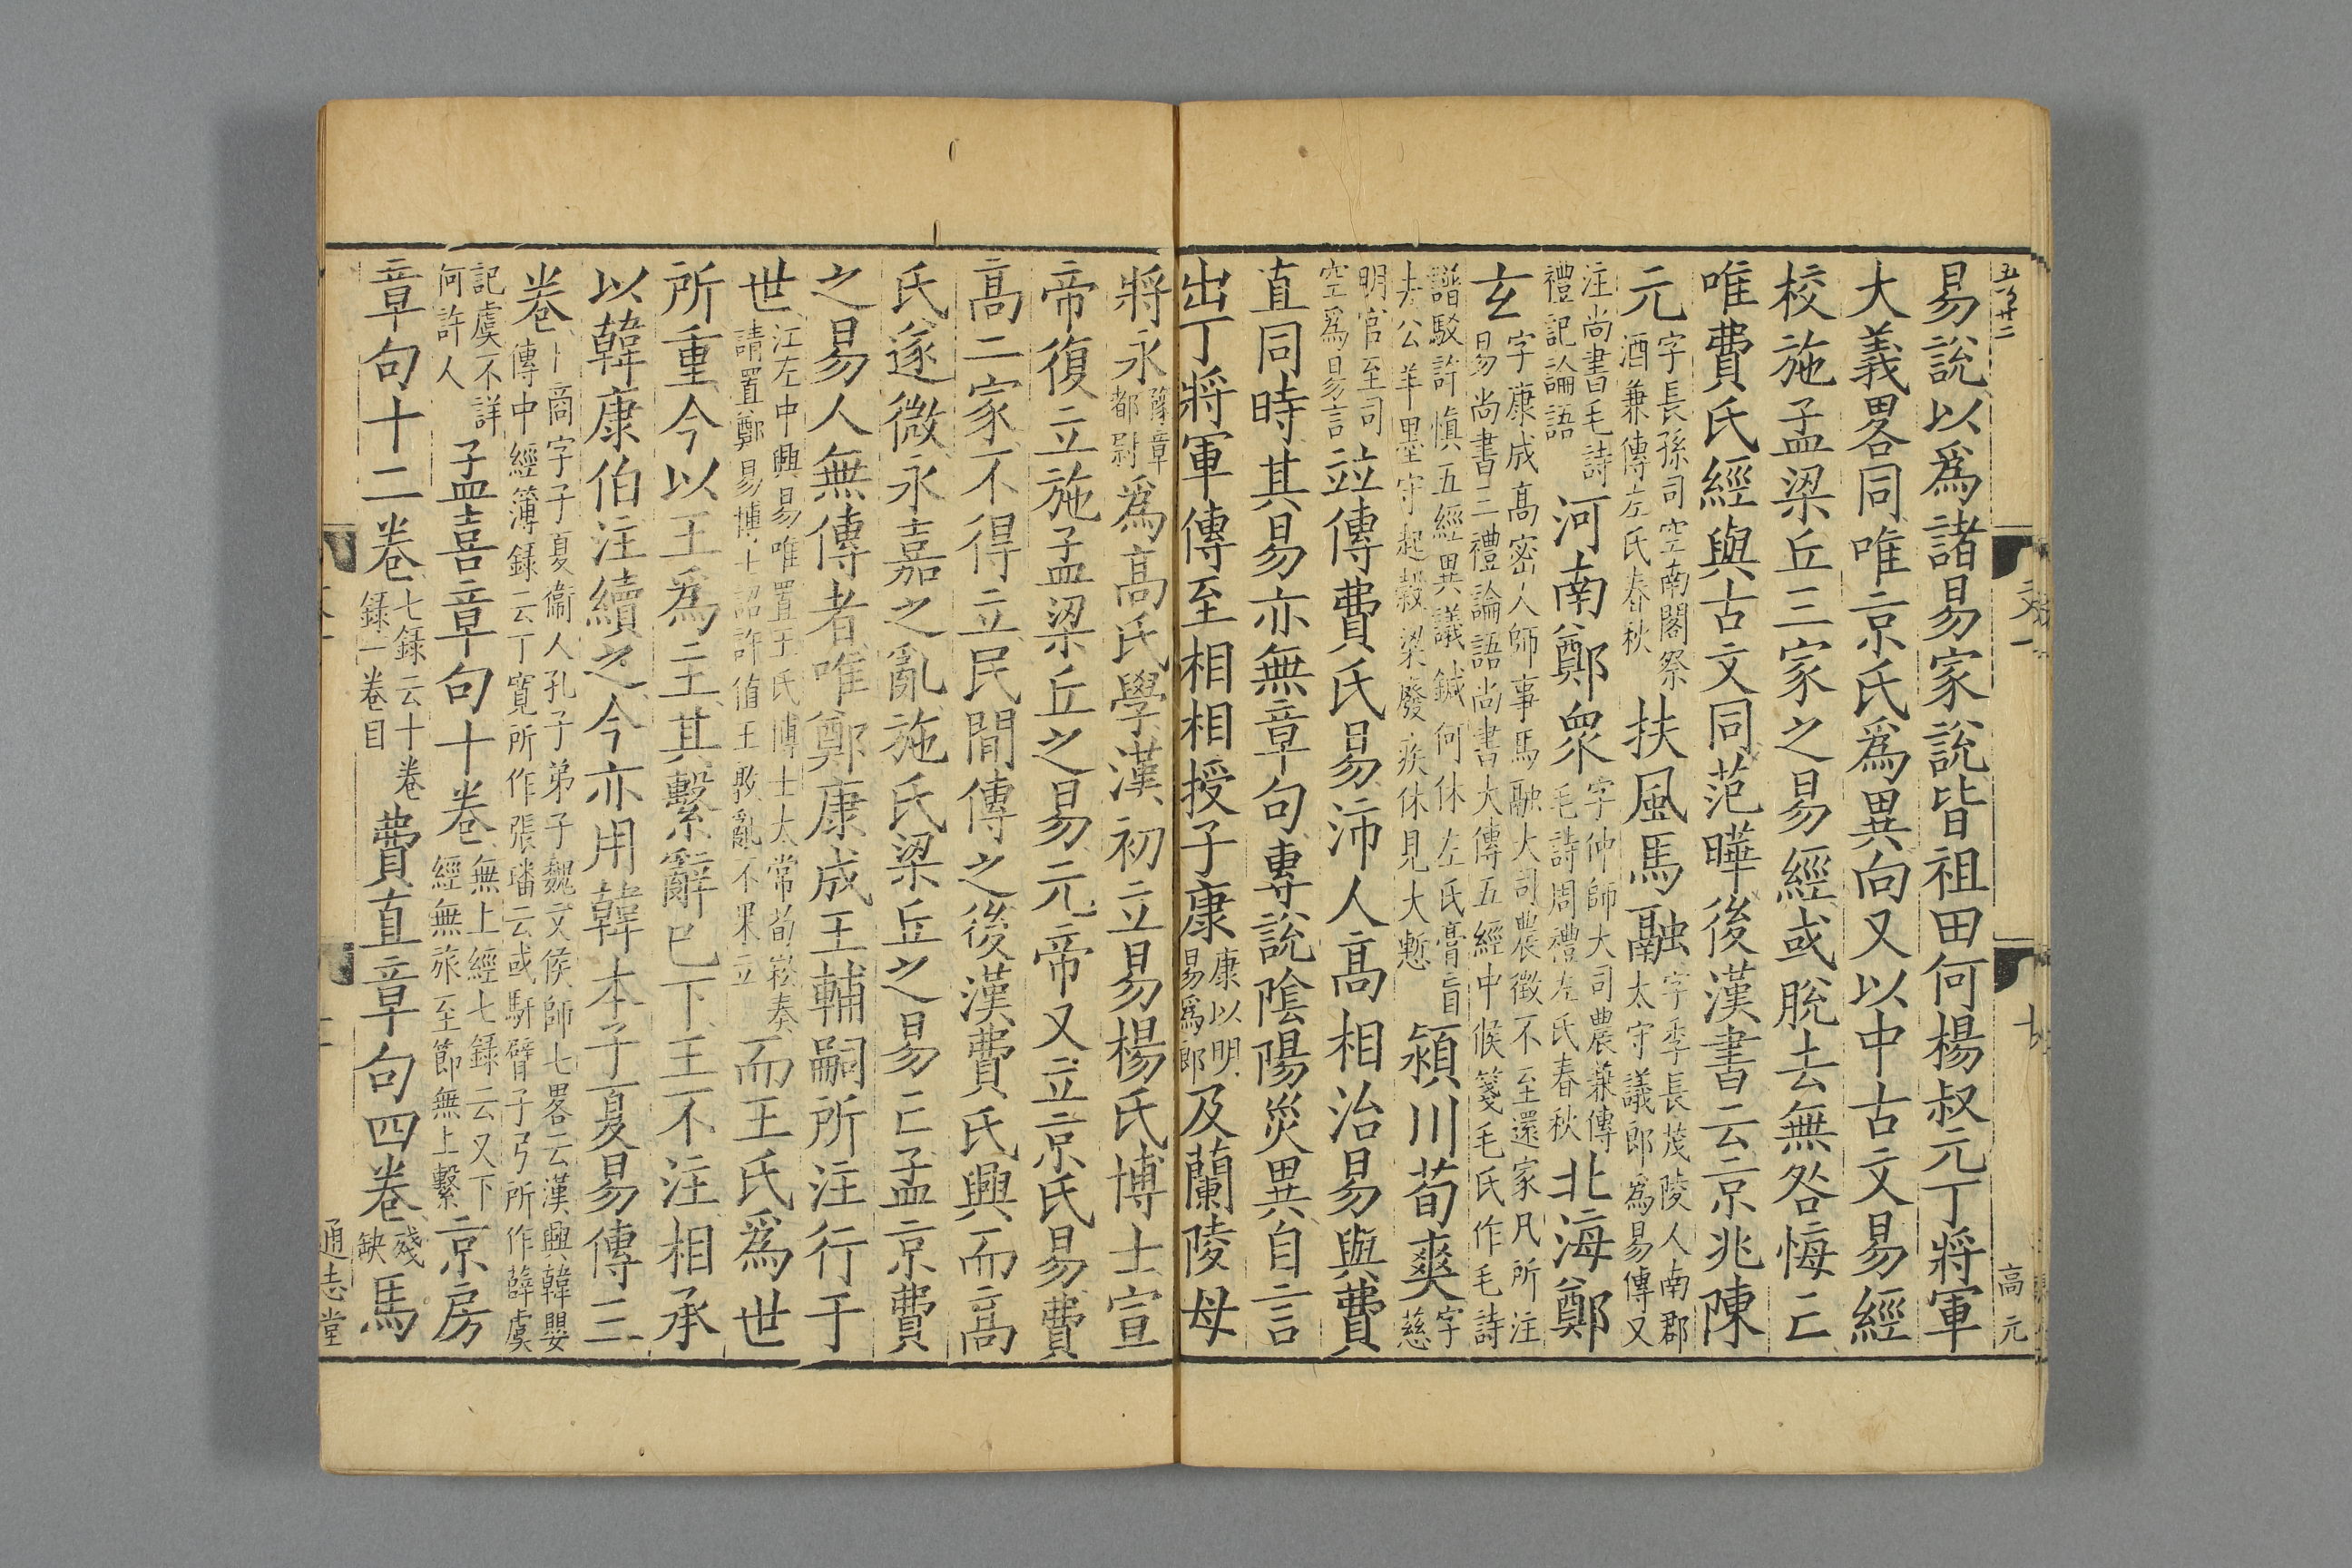 易說以爲諸易家說皆祖田何楊叔元丁將軍
大義畧同唯京氏爲異向又以中古文易經
校施孟梁丘三家之易經或脫去無咎悔亡
唯費氏經與古文同范曄後漢書云京兆陳
元字長孫司空南閣祭酒兼傳左氏春秋扶風馬融字季長茂陵人南郡太守議郎爲易傳又
注尚書毛詩禮記論語河南鄭衆字仲師大司農兼傳毛詩周禮左氏春秋北海鄭
玄字康成高密人師事馬融大司農徵不至還家凡所注易尚書三禮論語尚書大傳五經中候箋毛氏作毛詩
譜駁許愼五經異議鍼何休左氏膏肓去公羊墨守起穀梁廢疾休見大慙潁川荀爽字慈
明官至司空爲易言竝傳費氏易沛人高相治易與費
直同時其易亦無章句專說陰陽災異自言
出丁將軍傳至相相授子康康以明易爲郎及蘭陵母
將永豫章都尉爲高氏學漢初立易楊氏博士宣
帝復立施孟梁丘之易元帝又立京氏易費
高二家不得立民間傳之後漢費氏興而高
氏遂微永嘉之亂施氏梁丘之易亡孟京費
之易人無傳者唯鄭康成王輔嗣所注行于
世江左中興易唯置王氏博士太常荀崧奏請置鄭易博士詔許値王敦亂不果立而王氏爲世
所重今以王爲主其繫辭已下王不注相承
以韓康伯注續之今亦用韓本子夏易傳三
卷卜商字子夏衞人孔子弟子魏文侯師七畧云漢興韓嬰傳中經簿録云丁寬所作張璠云或馯臂子弓所作薛虞
記虞不詳何許人孟喜章句十卷無上經七録云又下經無旅至節無上繫京房
章句十二卷七録云十卷録一卷目費直章句四卷殘缺馬
通志堂
高元